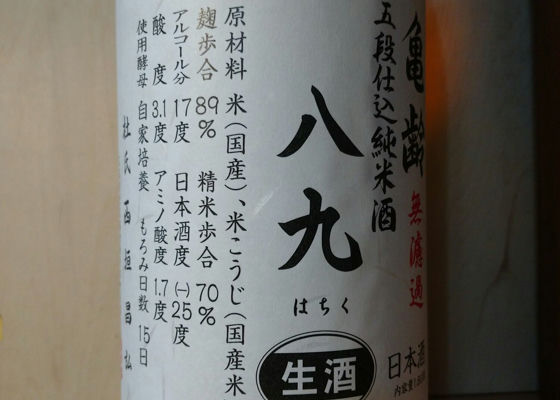 亀齢
無濾過
五段仕込純米酒
八九
はちく
生酒
日本酒
原材料 米(国産)、米こうじ(国産米
麹歩合 89% 精米歩合 70%
アルコール分 17度 日本酒度 (-)25度
酸度 3.1度 アミノ酸度 1.7度
使用酵母 自家培養 もろみ日数 15日
杜氏 西垣昌弘